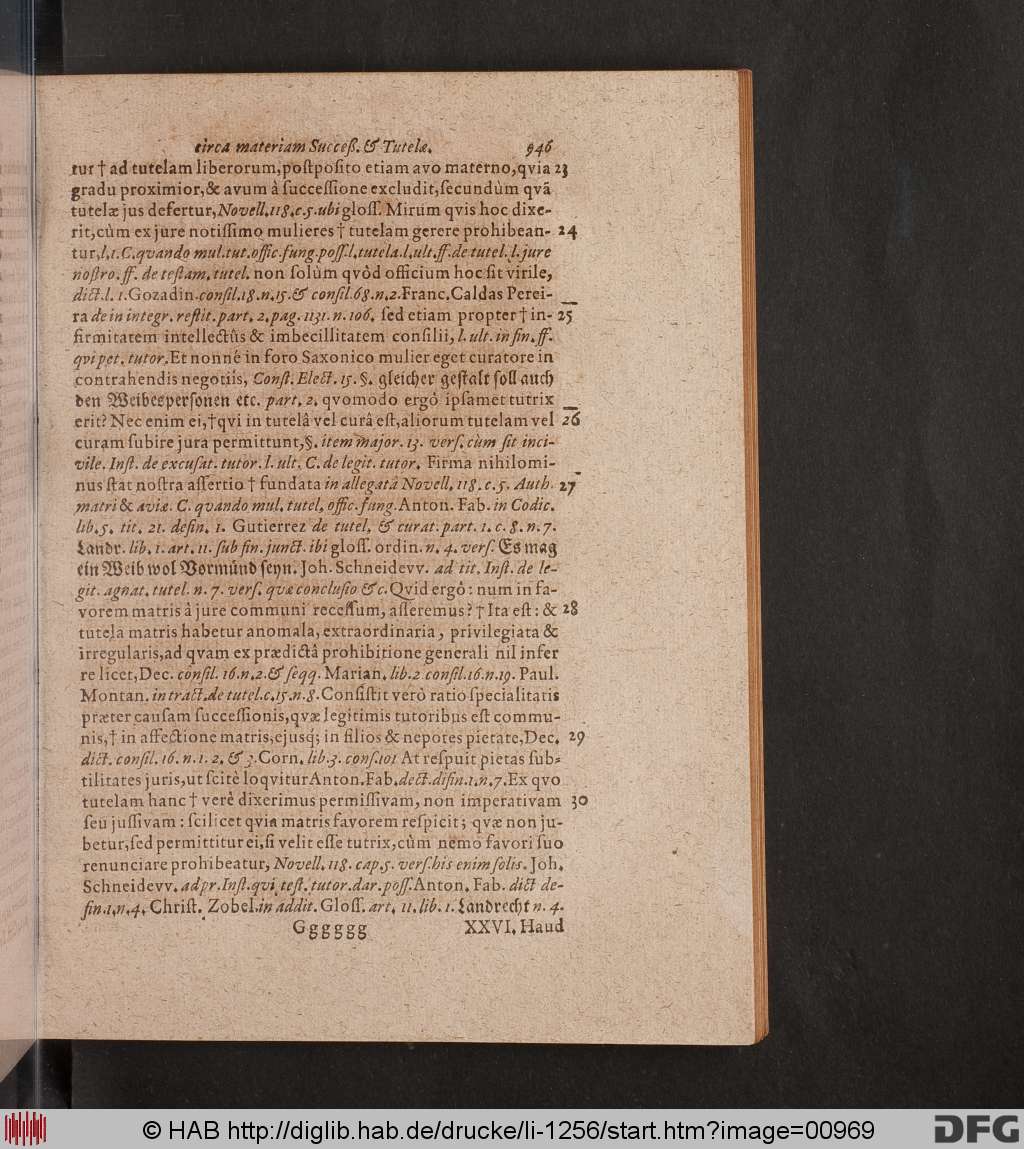 circa materiam Succeß. & Tutelæ. 946
tur † ad tutelam liberorum, postposito etiam avo materno, qvia 23
gradu proximior, & avum â successione excludit, secundùm qvã
tutelæ jus defertur, Novell. 118. c. 5. ubi gloss. Mirum qvis hoc dixe-
rit, cùm ex jure notissimo mulieres † tutelam gerere prohibean- 24
tur, l. 1. C. qvando mul. tut. offic. fung. poss. l. tutela. l. ult. ff. de tutel. l. jure
nostro. ff. de testam. tutel. non solùm qvòd officium hoc sit virile,
dict. l. 1. Gozadin. consil. 18. n. 15. & consil. 68. n. 2. Franc. Caldas Perei-
ra de in integr. restit. part. 2. pag. 1131. n. 106. sed etiam propter † in- 25
firmitatem intellectûs & imbecillitatem consilii, l. ult. in fin. ff.
qvi pet. tutor. Et nonné in foro Saxonico mulier eget curatore in
contrahendis negotiis, Const. Elect. 15. §. gleicher gestalt soll auch
den Weibespersonen etc. part. 2. qvomodo ergô ipsamet tutrix
erit? Nec enim ei, † qvi in tutelâ vel curâ est, aliorum tutelam vel 26
curam subire jura permittunt, §. item major. 13. vers. cùm sit inci-
vile. Inst. de excusat. tutor. l. ult. C. de legit. tutor. Firma nihilomi-
nus stat nostra assertio † fundata in allegatâ Novell. 118. c. 5. Auth. 27
matri & aviæ. C. qvando mul. tutel. offic. fung. Anton. Fab. in Codic.
lib. 5. tit. 21. defin. 1. Gutierrez de tutel. & curat. part. 1. c. 8. n. 7.
Landr. lib. 1. art. 11. sub fin. junct. ibi gloss. ordin. n. 4. vers. Es mag
ein Weib wol Vormünd seyn. Joh. Schneidevv. ad tit. Inst. de le-
git. agnat. tutel. n. 7. vers. qvæ conclusio &c. Qvid ergô: num in fa-
vorem matris â jure communi recessum, asseremus? † Ita est: & 28
tutela matris habetur anomala, extraordinaria, privilegiata &
irregularis, ad qvam ex prædictâ prohibitione generali nil infer
re licet, Dec. consil. 16. n. 2. & seqq. Marian. lib. 2 consil. 16. n. 19. Paul.
Montan. in tract. de tutel. c. 15. n. 8. Consistit verò ratio specialitatis
præter causam successionis, qvæ legitimis tutoribus est commu-
nis, † in affectione matris, ejusq; in filios & nepotes pietate, Dec. 29
dict. consil. 16. n. 1. 2. & 3. Corn. lib. 3. cons. 101 At respuit pietas sub-
tilitates juris, ut scitè loqvitur Anton. Fab. dect. difin. 1. n. 7. Ex qvo
tutelam hanc † verè dixerimus permissivam, non imperativam 30
seu jussivam: scilicet qvia matris favorem respicit; qvæ non ju-
betur, sed permittitur ei, si velit esse tutrix, cùm nemo favori suo
renunciare prohibeatur, Novell. 118. cap. 5. vers. his enim solis. Joh.
Schneidevv. ad pr. Inst. qvi test. tutor. dar. poss. Anton. Fab. dict de-
fin. 1. n. 4. Christ. Zobel. in addit. Gloss. art. 11. lib. 1. Landrecht n. 4.
Gggggg XXVI. Haud
© HAB http://diglib.hab.de/drucke/li-1256/start.htm?image=00969
DFG